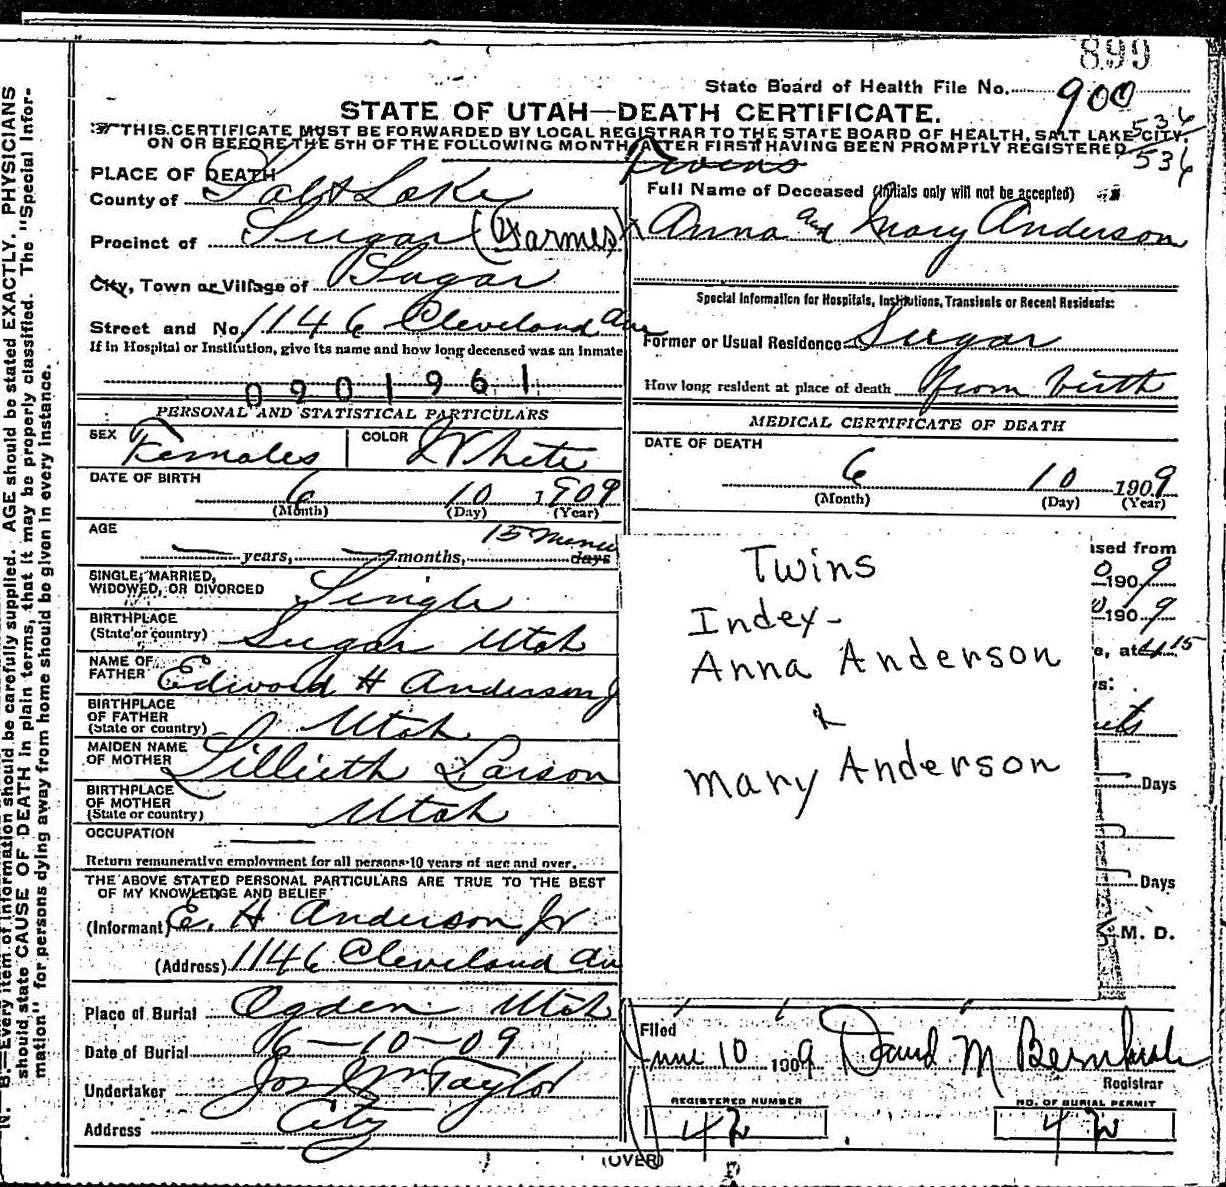 899
State Board of Health File No. 900
STATE OF UTAH—DEATH CERTIFICATE.
THIS CERTIFICATE MUST BE FORWARDED BY LOCAL REGISTRAR TO THE STATE BOARD OF HEALTH, SALT LAKE CITY,
ON OR BEFORE THE 5TH OF THE FOLLOWING MONTH, AFTER FIRST HAVING BEEN PROMPTLY REGISTERED
536
536
Twins
PLACE OF DEATH
County of Salt Lake
Precinct of Sugar (Farmes)
City, Town or Village of Sugar
Street and No. 1146 Cleveland Ave
If in Hospital or Institution, give its name and how long deceased was an inmate
0901961
Full Name of Deceased (Initials only will not be accepted)
Anna and Mary Anderson
Special Information for Hospitals, Institutions, Transients or Recent Residents:
Former or Usual Residence Sugar
How long resident at place of death from birth
PERSONAL AND STATISTICAL PARTICULARS
SEX Females COLOR White
DATE OF BIRTH
6 10 1909
(Month) (Day) (Year)
AGE
years, months, 15 days
SINGLE, MARRIED,
WIDOWED, OR DIVORCED Single
BIRTHPLACE
(State or country) Sugar Utah
NAME OF
FATHER Edward H Anderson J
BIRTHPLACE
OF FATHER
(State or country) Utah
MAIDEN NAME
OF MOTHER Lillieth Larson
BIRTHPLACE
OF MOTHER
(State or country) Utah
OCCUPATION
Return remunerative employment for all persons 10 years of age and over.
THE ABOVE STATED PERSONAL PARTICULARS ARE TRUE TO THE BEST
OF MY KNOWLEDGE AND BELIEF
(Informant) E. H Anderson Jr
(Address) 1146 Cleveland Av
Place of Burial Ogden Utah
Date of Burial 6-10-09
Undertaker Jos Wm Taylor
Address City
MEDICAL CERTIFICATE OF DEATH
DATE OF DEATH
6 10 1909
(Month) (Day) (Year)
Twins
Index-
Anna Anderson
&
Mary Anderson
ased from
190 9
190 9
e, at 4 15
s:
Days
Days
M. D.
Filed
June 10 1909 David M
Registrar
REGISTERED NUMBER
42
NO. OF BURIAL PERMIT
42
(OVER)
N. B.—Every item of information should be carefully supplied. AGE should be stated EXACTLY. PHYSICIANS
should state CAUSE OF DEATH in plain terms, that it may be properly classified. The "Special Infor-
mation" for persons dying away from home should be given in every instance.